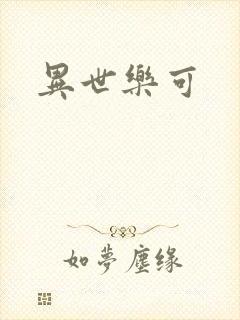 異世樂可
如夢塵缘